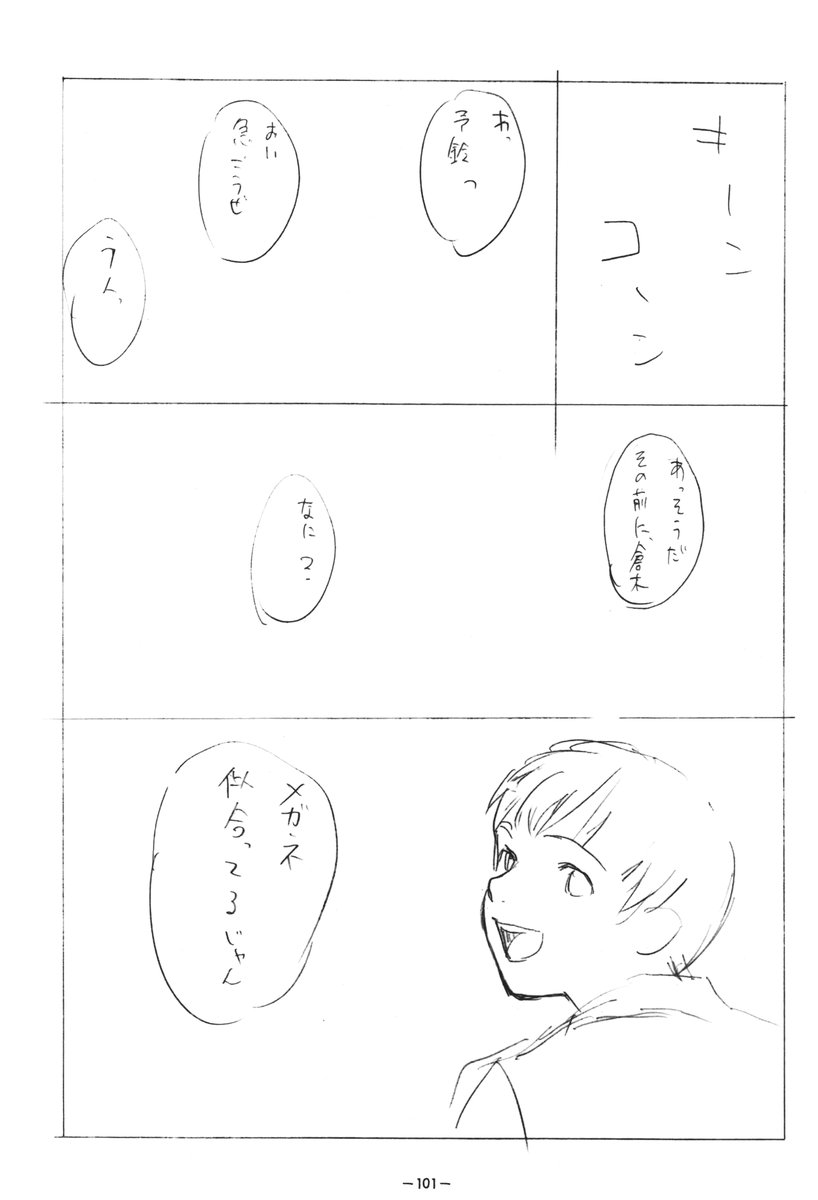 キーン
コーン
あっ、
予鈴っ
おい
急ごうぜ
うんっ
あっそうだ
その前に、倉木
なに？
メガネ
似合ってるじゃん
—101—